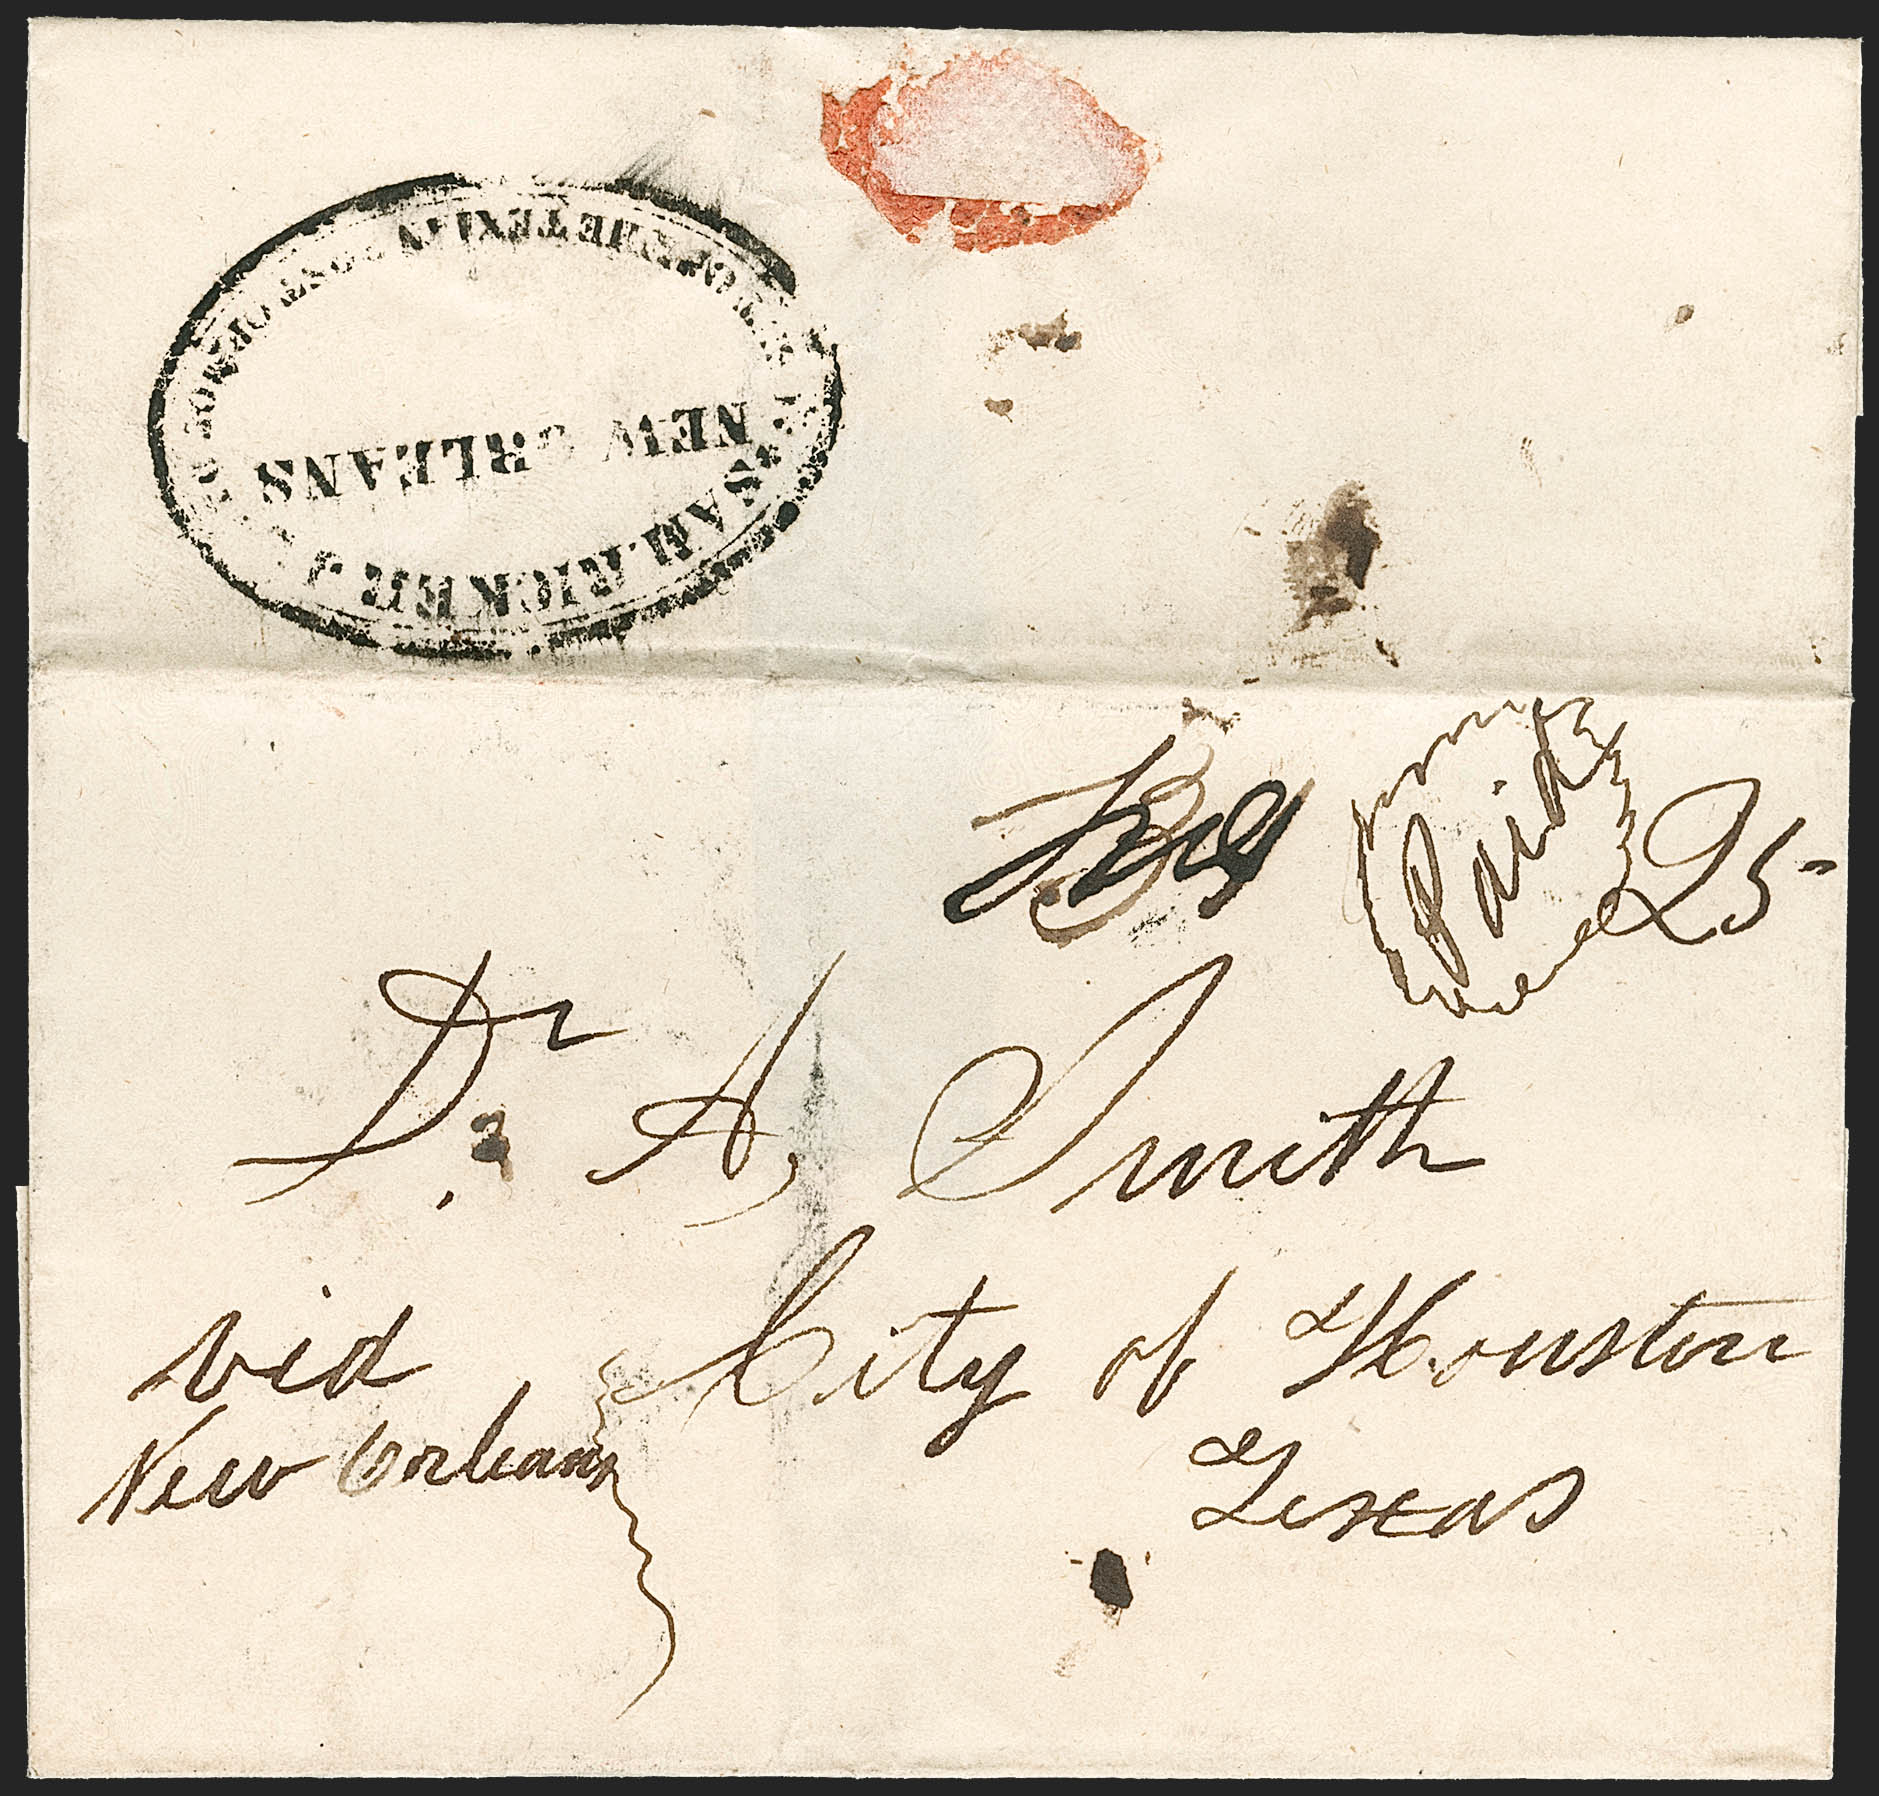 SAM. RICKER J
NEW ORLEANS
OF THE TEXIAN
Paid 25
Dr A, Smith
via City of Houston
New Orleans
Texas